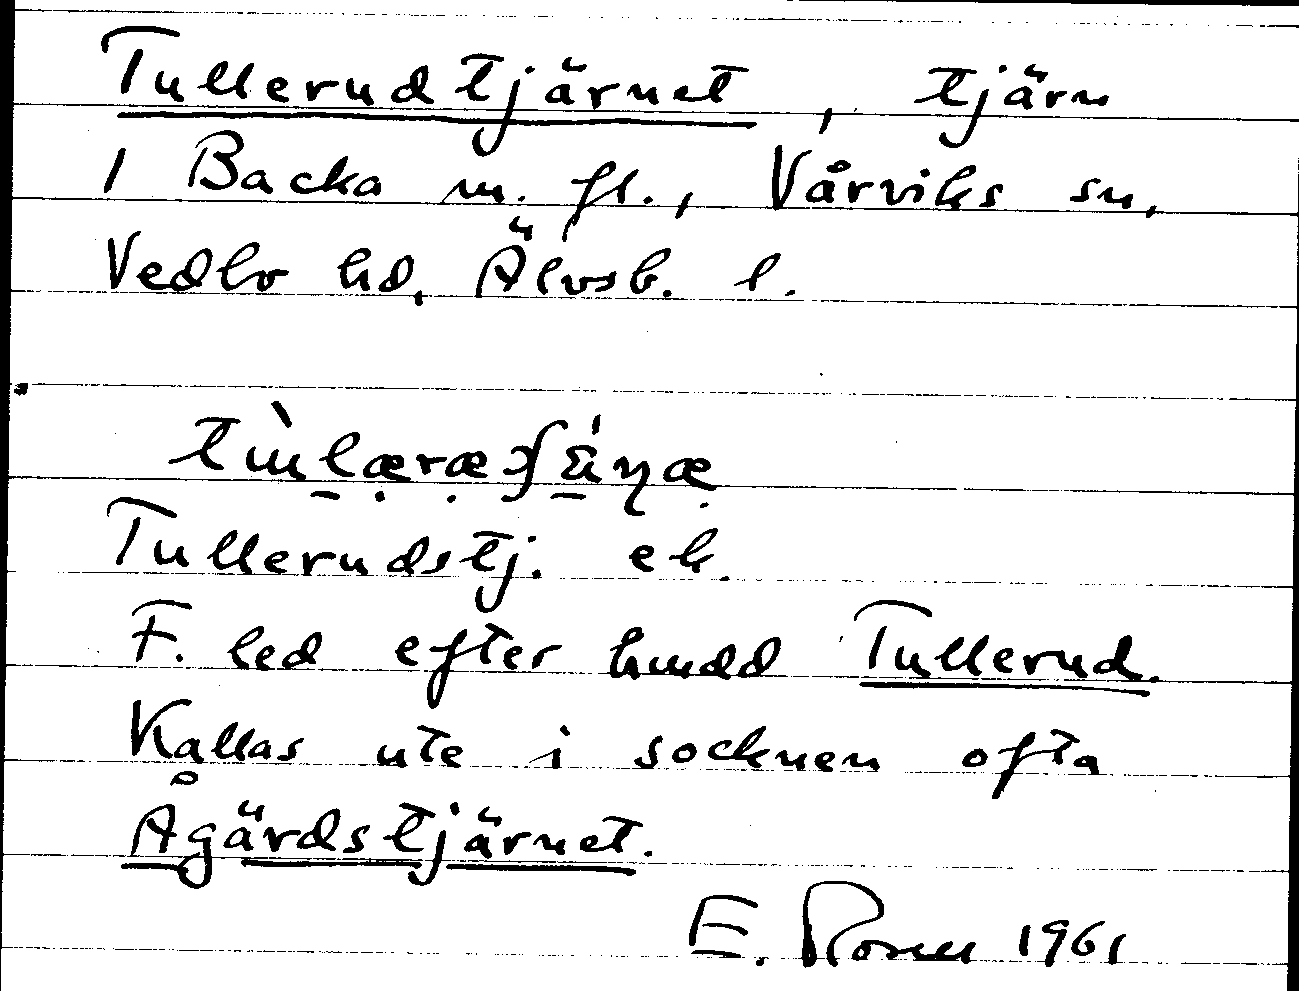 Tullerudtjärnet, tjärn
i Backa m. fl., Vårviks sn,
Vedbo hd, Älvsb. l.
Tullerudstj. ek.
F. led efter hmdd Tullerud.
Kallas ute i socknen ofta
Ågärdstjärnet.
E. Rosell 1961